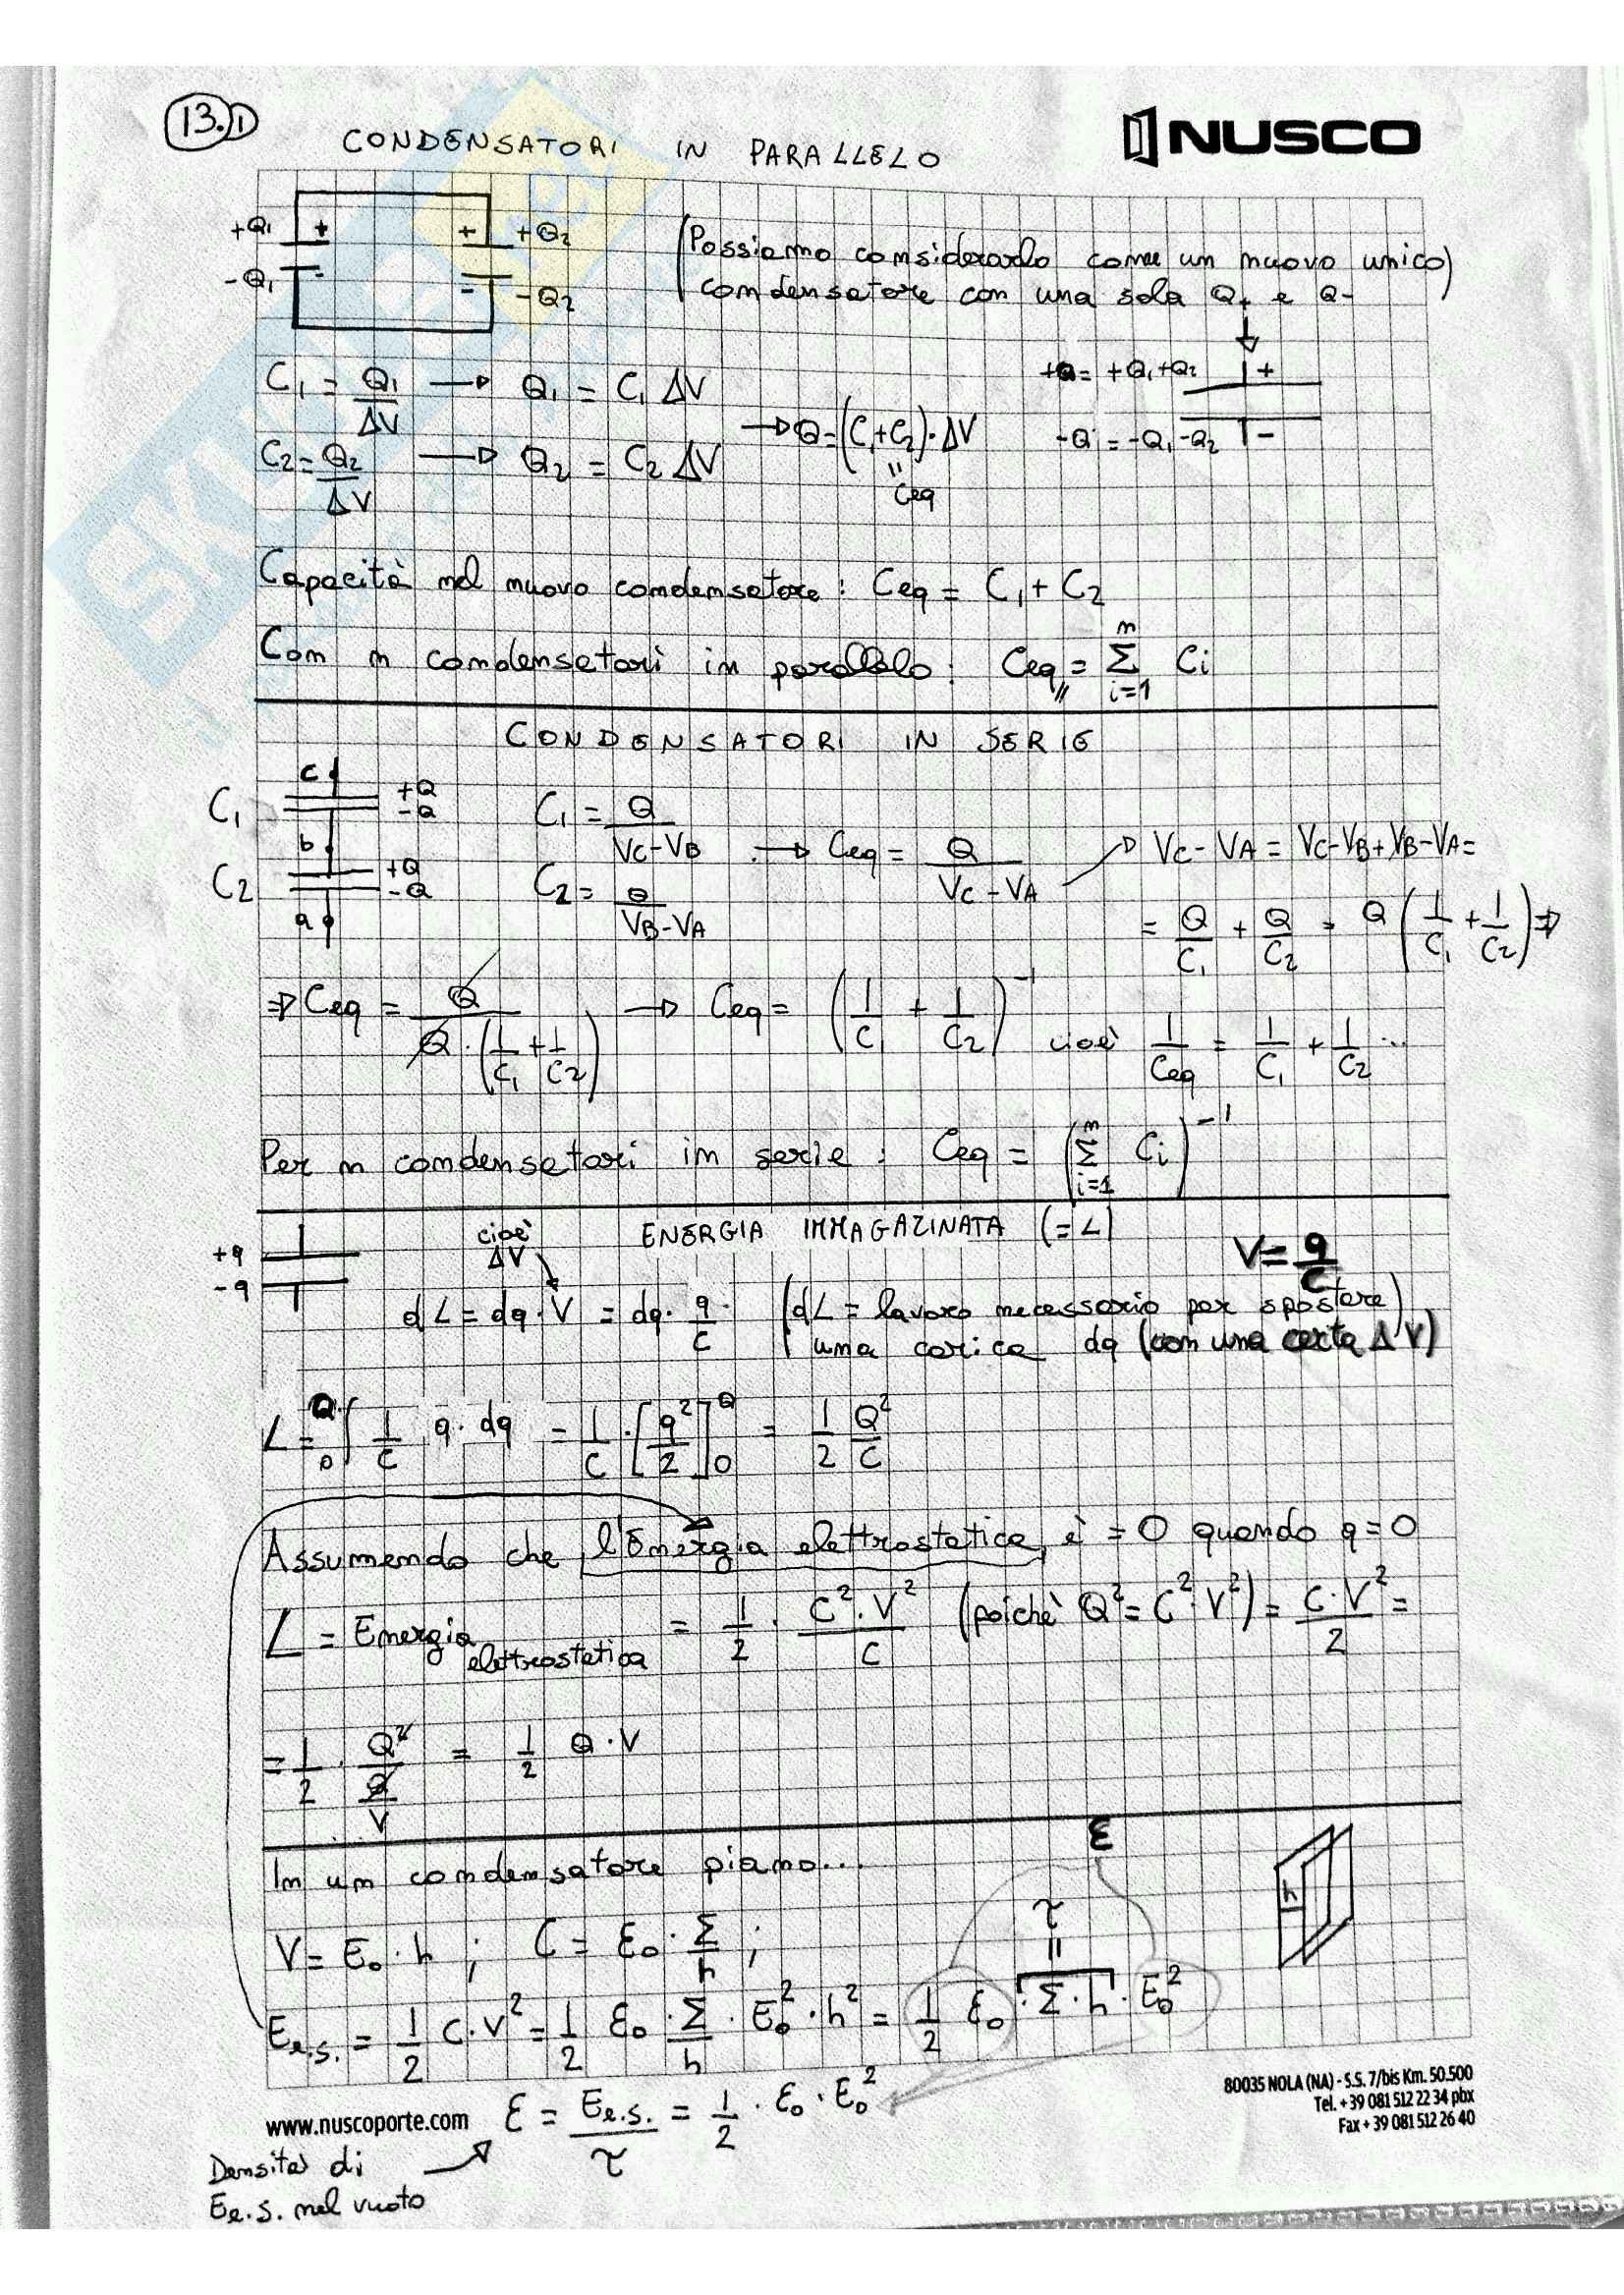 13.1
NUSCO
CONDENSATORI IN PARALLELO
+Q1 + + +Q2
-Q1 - - -Q2
(Possiamo considerarlo come un nuovo unico)
condensatore con una sola Q+ e Q-
C1 = Q1/ΔV → Q1 = C1 ΔV
C2 = Q2/ΔV → Q2 = C2 ΔV
→ Q = (C1+C2)·ΔV
" Ceq
+Q = +Q1+Q2 +
-Q = -Q1-Q2 -
Capacità nel nuovo condensatore: Ceq = C1 + C2
Con n condensatori in parallelo: Ceq// = Σ i=1 n Ci
CONDENSATORI IN SERIE
C1 c +Q -Q
b
C2 +Q -Q
a
C1 = Q/(VC-VB)
C2 = Q/(VB-VA)
→ Ceq = Q/(VC-VA) → VC-VA = VC-VB+VB-VA =
= Q/C1 + Q/C2 = Q (1/C1 + 1/C2) ⇒
⇒ Ceq = Q/(Q·(1/C1+1/C2)) → Ceq = (1/C1 + 1/C2)^-1 cioè 1/Ceq = 1/C1 + 1/C2 ...
Per n condensatori in serie: Ceq = (Σ i=1 n Ci)^-1
ENERGIA IMMAGAZINATA (=L)
+q
-q
cioè ΔV
V = q/C
dL = dq·V = dq·q/C
(dL = lavoro necessario per spostare)
una carica dq (con una certa ΔV)
L = 0∫Q 1/C q·dq = 1/C·[q²/2]0Q = 1/2 Q²/C
Assumendo che l'Energia elettrostatica è = 0 quando q=0
L = Energia elettrostatica = 1/2 · C²·V²/C (poichè Q² = C²·V²) = C·V²/2 =
= 1/2 · Q²/(Q/V) = 1/2 Q·V
In un condensatore piano...
ε
h
V = E0·h ; C = ε0·Σ/h ;
τ
"
Ee.s. = 1/2 C·V² = 1/2 ε0·Σ/h·E0²·h² = 1/2 ε0·Σ·h·E0²
ε = Ee.s./τ = 1/2·ε0·E0²
www.nuscoporte.com
80035 NOLA (NA) - S.S. 7/bis Km. 50.500
Tel. +39 081 512 22 34 pbx
Fax +39 081 512 26 40
Densità di
Ee.s. nel vuoto